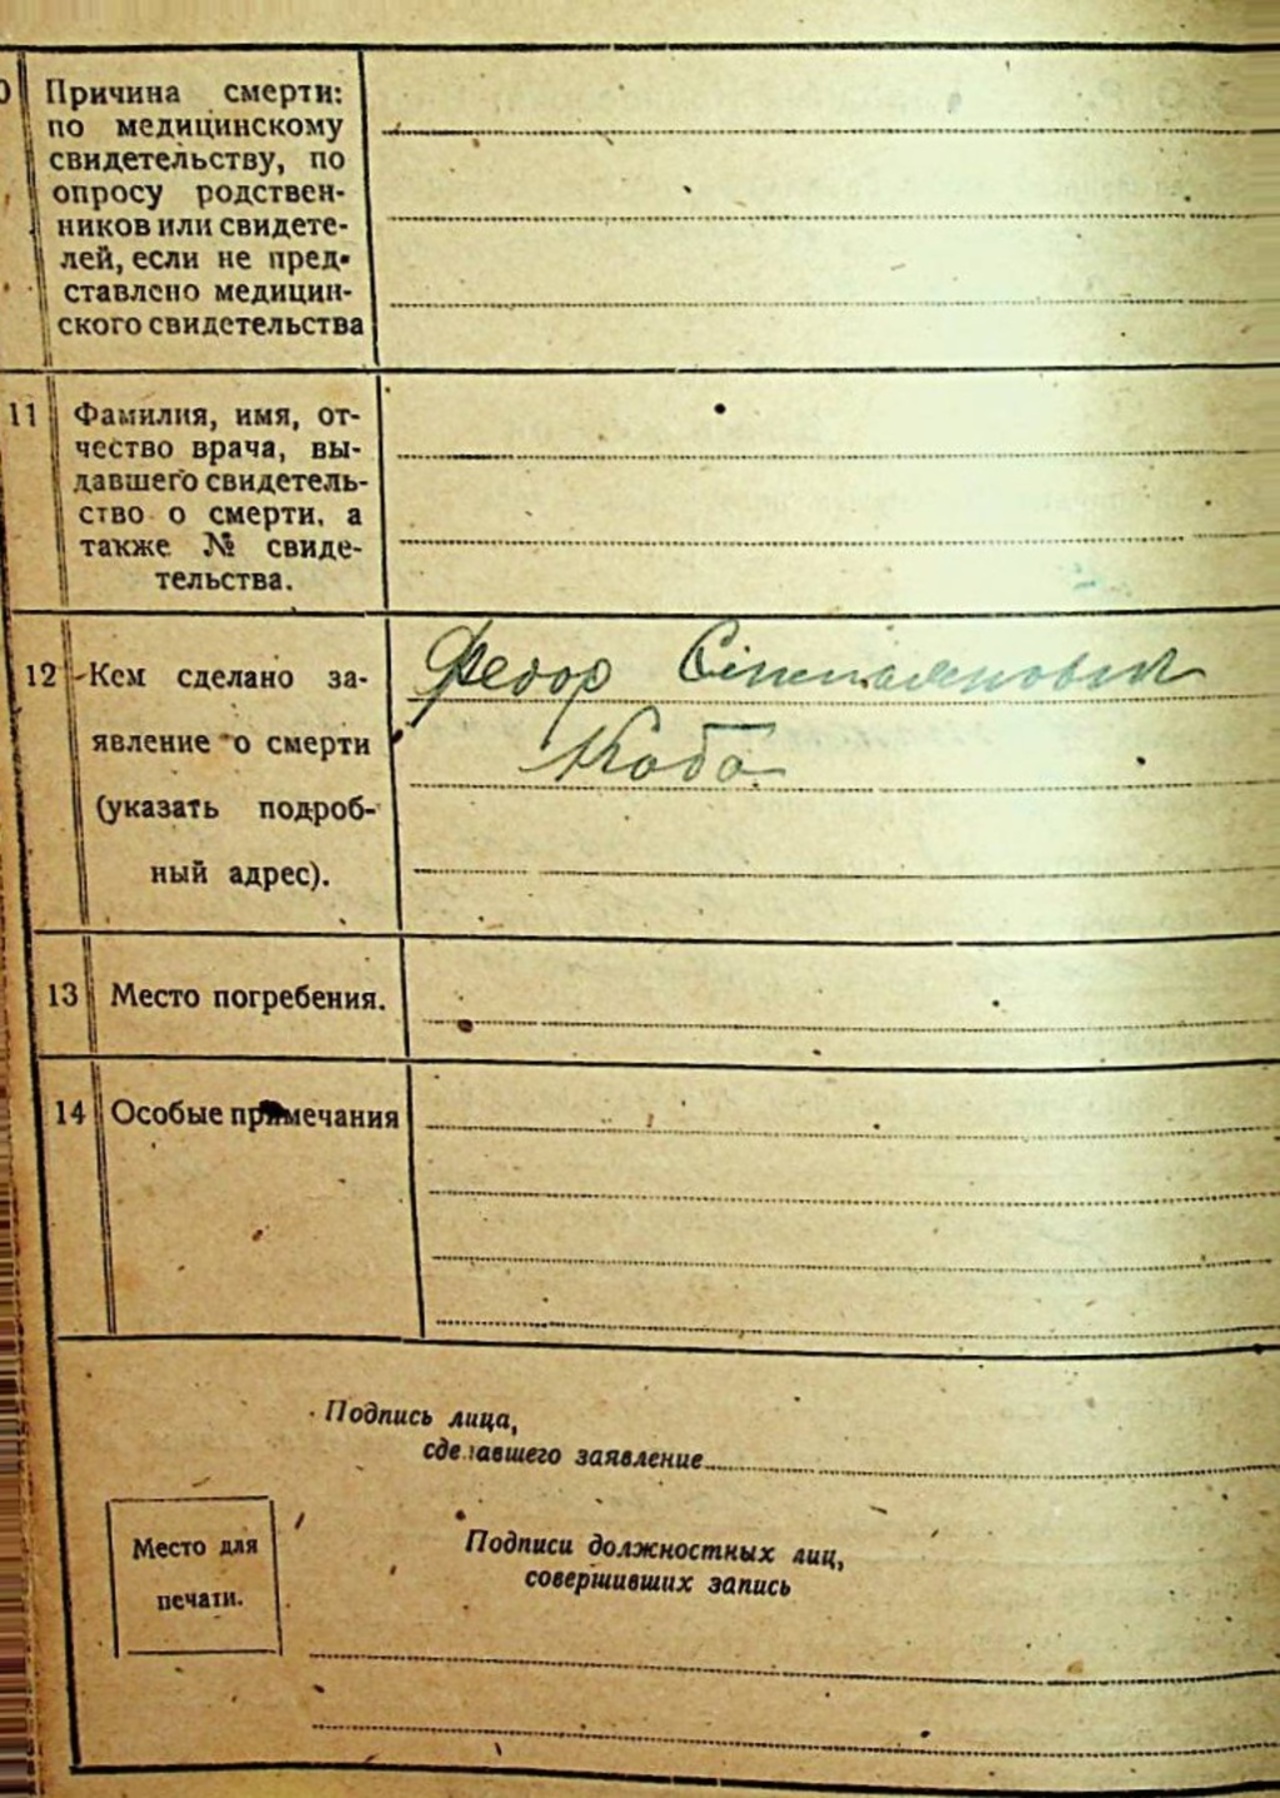 Причина смерти:
по медицинскому
свидетельству, по
опросу родствен-
ников или свидете-
лей, если не пред-
ставлено медицин-
ского свидетельства
11
Фамилия, имя, от-
чество врача, вы-
давшего свидетель-
ство о смерти, а
также № свиде-
тельства.
12
Кем сделано за-
явление о смерти
(указать подроб-
ный адрес).
Федор
Коба
13
Место погребения.
14
Особые примечания
Подпись лица,
сделавшего заявление
Место для
печати.
Подписи должностных лиц,
совершивших запись